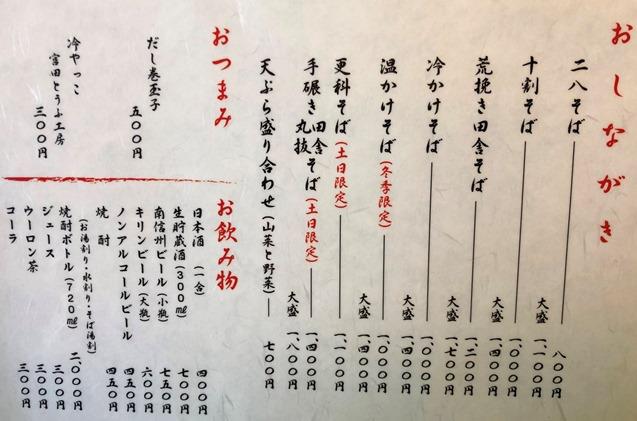 おしながき
二八そば 八〇〇円
大盛 一、一〇〇円
十割そば 一、〇〇〇円
大盛 一、四〇〇円
荒挽き田舎そば 一、二〇〇円
大盛 一、七〇〇円
冷かけそば 一、〇〇〇円
大盛 一、四〇〇円
温かけそば(冬季限定) 一、〇〇〇円
大盛 一、四〇〇円
更科そば(土日限定) 一、一〇〇円
手碾き 田舎そば(土日限定) 一、四〇〇円
丸抜 大盛 一、八〇〇円
天ぷら盛り合わせ(山菜と野菜) 七〇〇円
おつまみ
だし巻玉子 五〇〇円
冷やっこ
宮田とうふ工房 三〇〇円
お飲み物
日本酒(一合) 四〇〇円
生貯蔵酒(300㎖) 七〇〇円
南信州ビール(小瓶) 七五〇円
キリンビール(大瓶) 六〇〇円
ノンアルコールビール 四五〇円
焼酎 四五〇円
(お湯割り・水割り・そば湯割)
焼酎ボトル(720㎖) 二、〇〇〇円
ジュース 三〇〇円
ウーロン茶 三〇〇円
コーラ 三〇〇円